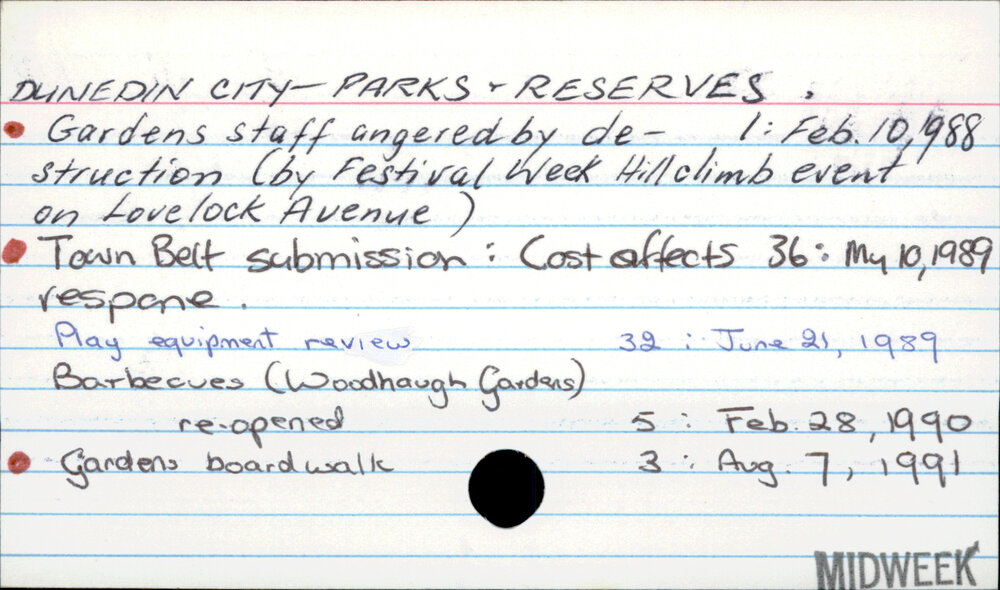 DUNEDIN CITY — PARKS & RESERVES.
Gardens staff angered by de- 1: Feb. 10, 1988
struction (by Festival Week Hillclimb event
on Lovelock Avenue)
Town Belt submission: Cost affects 36: My 10, 1989
respone.
Play equipment review 32: June 21, 1989
Barbecues (Woodhaugh Gardens)
re-opened 5: Feb. 28, 1990
Gardens boardwalk 3: Aug. 7, 1991
MIDWEEK